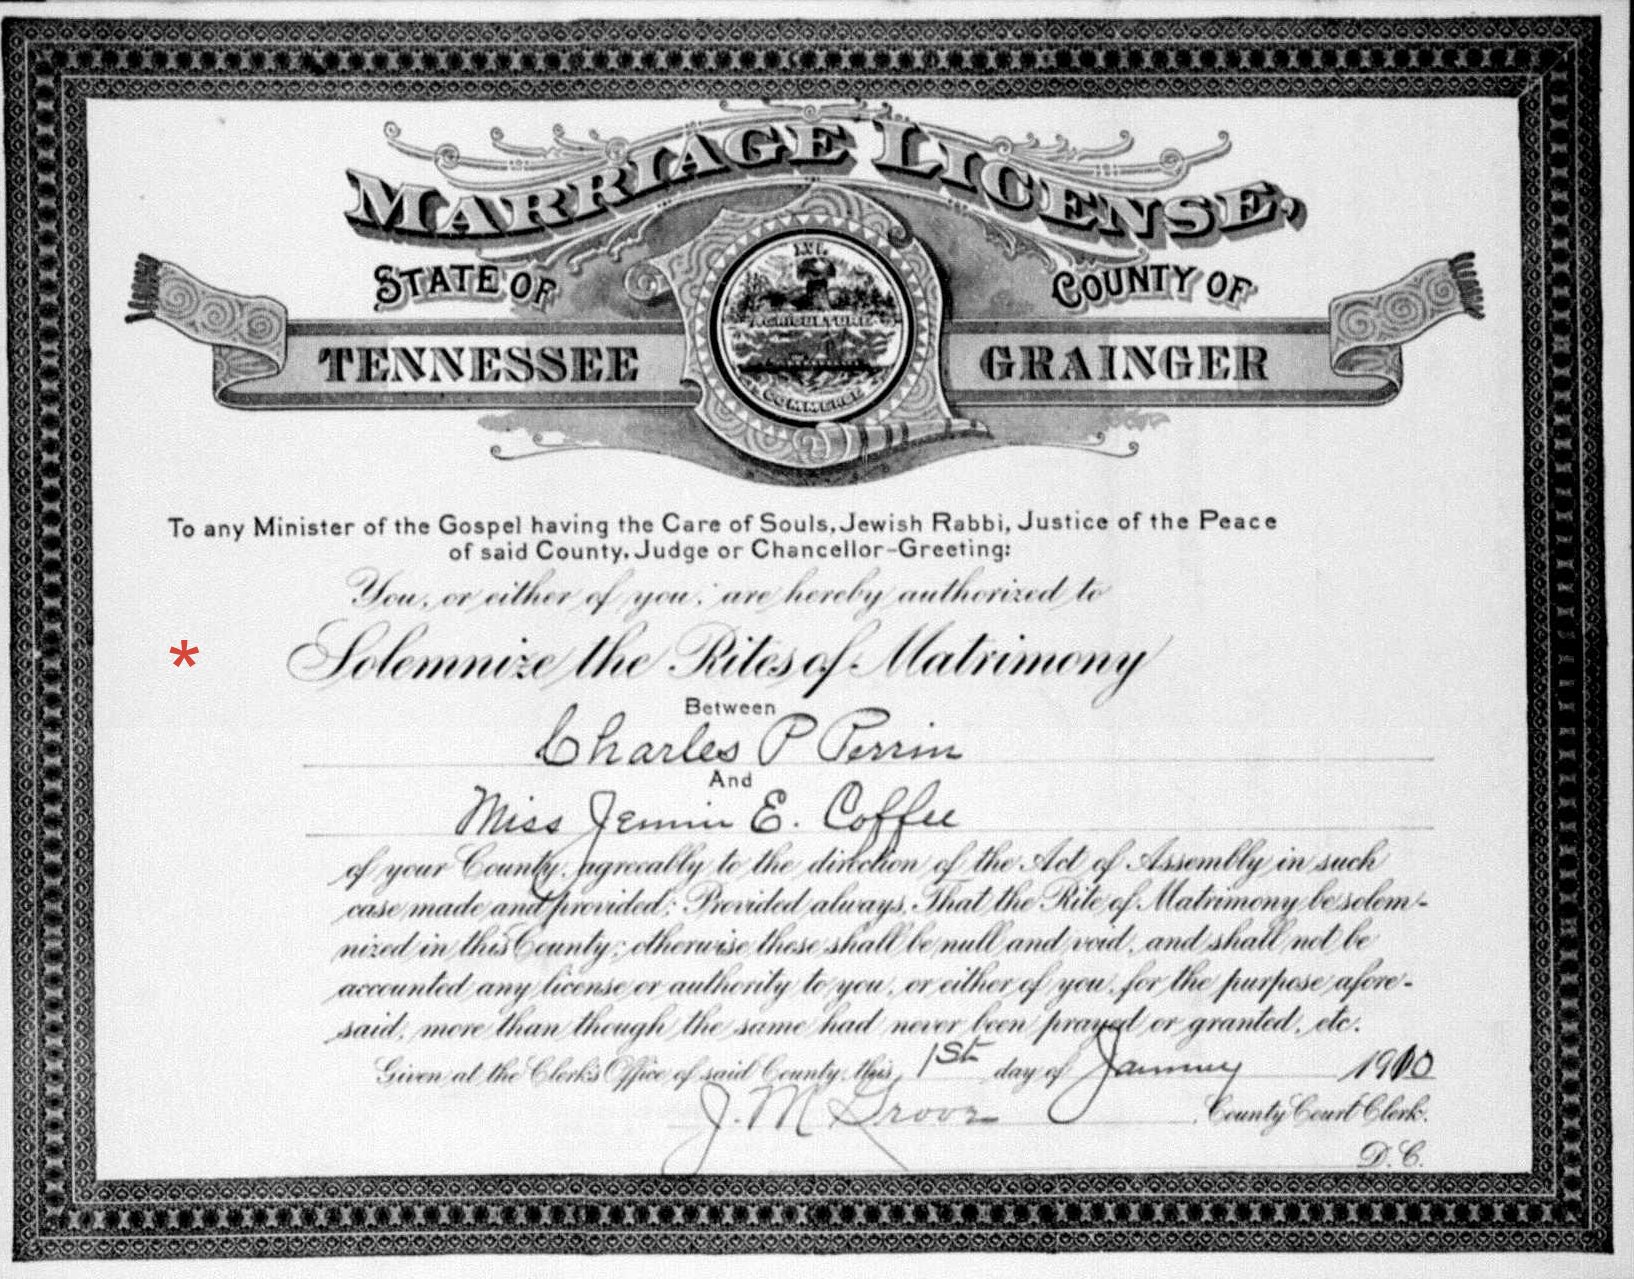 MARRIAGE LICENSE,
STATE OF
COUNTY OF
TENNESSEE
GRAINGER
XVI.
AGRICULTURE
COMMERCE
To any Minister of the Gospel having the Care of Souls, Jewish Rabbi, Justice of the Peace
of said County, Judge or Chancellor-Greeting:
You, or either of you, are hereby authorized to
* Solemnize the Rites of Matrimony
Between
Charles P Perrin
And
Miss Jennie E. Coffee
of your County, agreeably to the direction of the Act of Assembly in such
case made and provided; Provided always, That the Rite of Matrimony be solem-
nized in this County; otherwise these shall be null and void, and shall not be
accounted any license or authority to you, or either of you, for the purpose afore-
said, more than though the same had never been prayed or granted, etc.
Given at the Clerk's Office of said County, this 1st day of January 1910
J. M Grove County Court Clerk.
D. C.